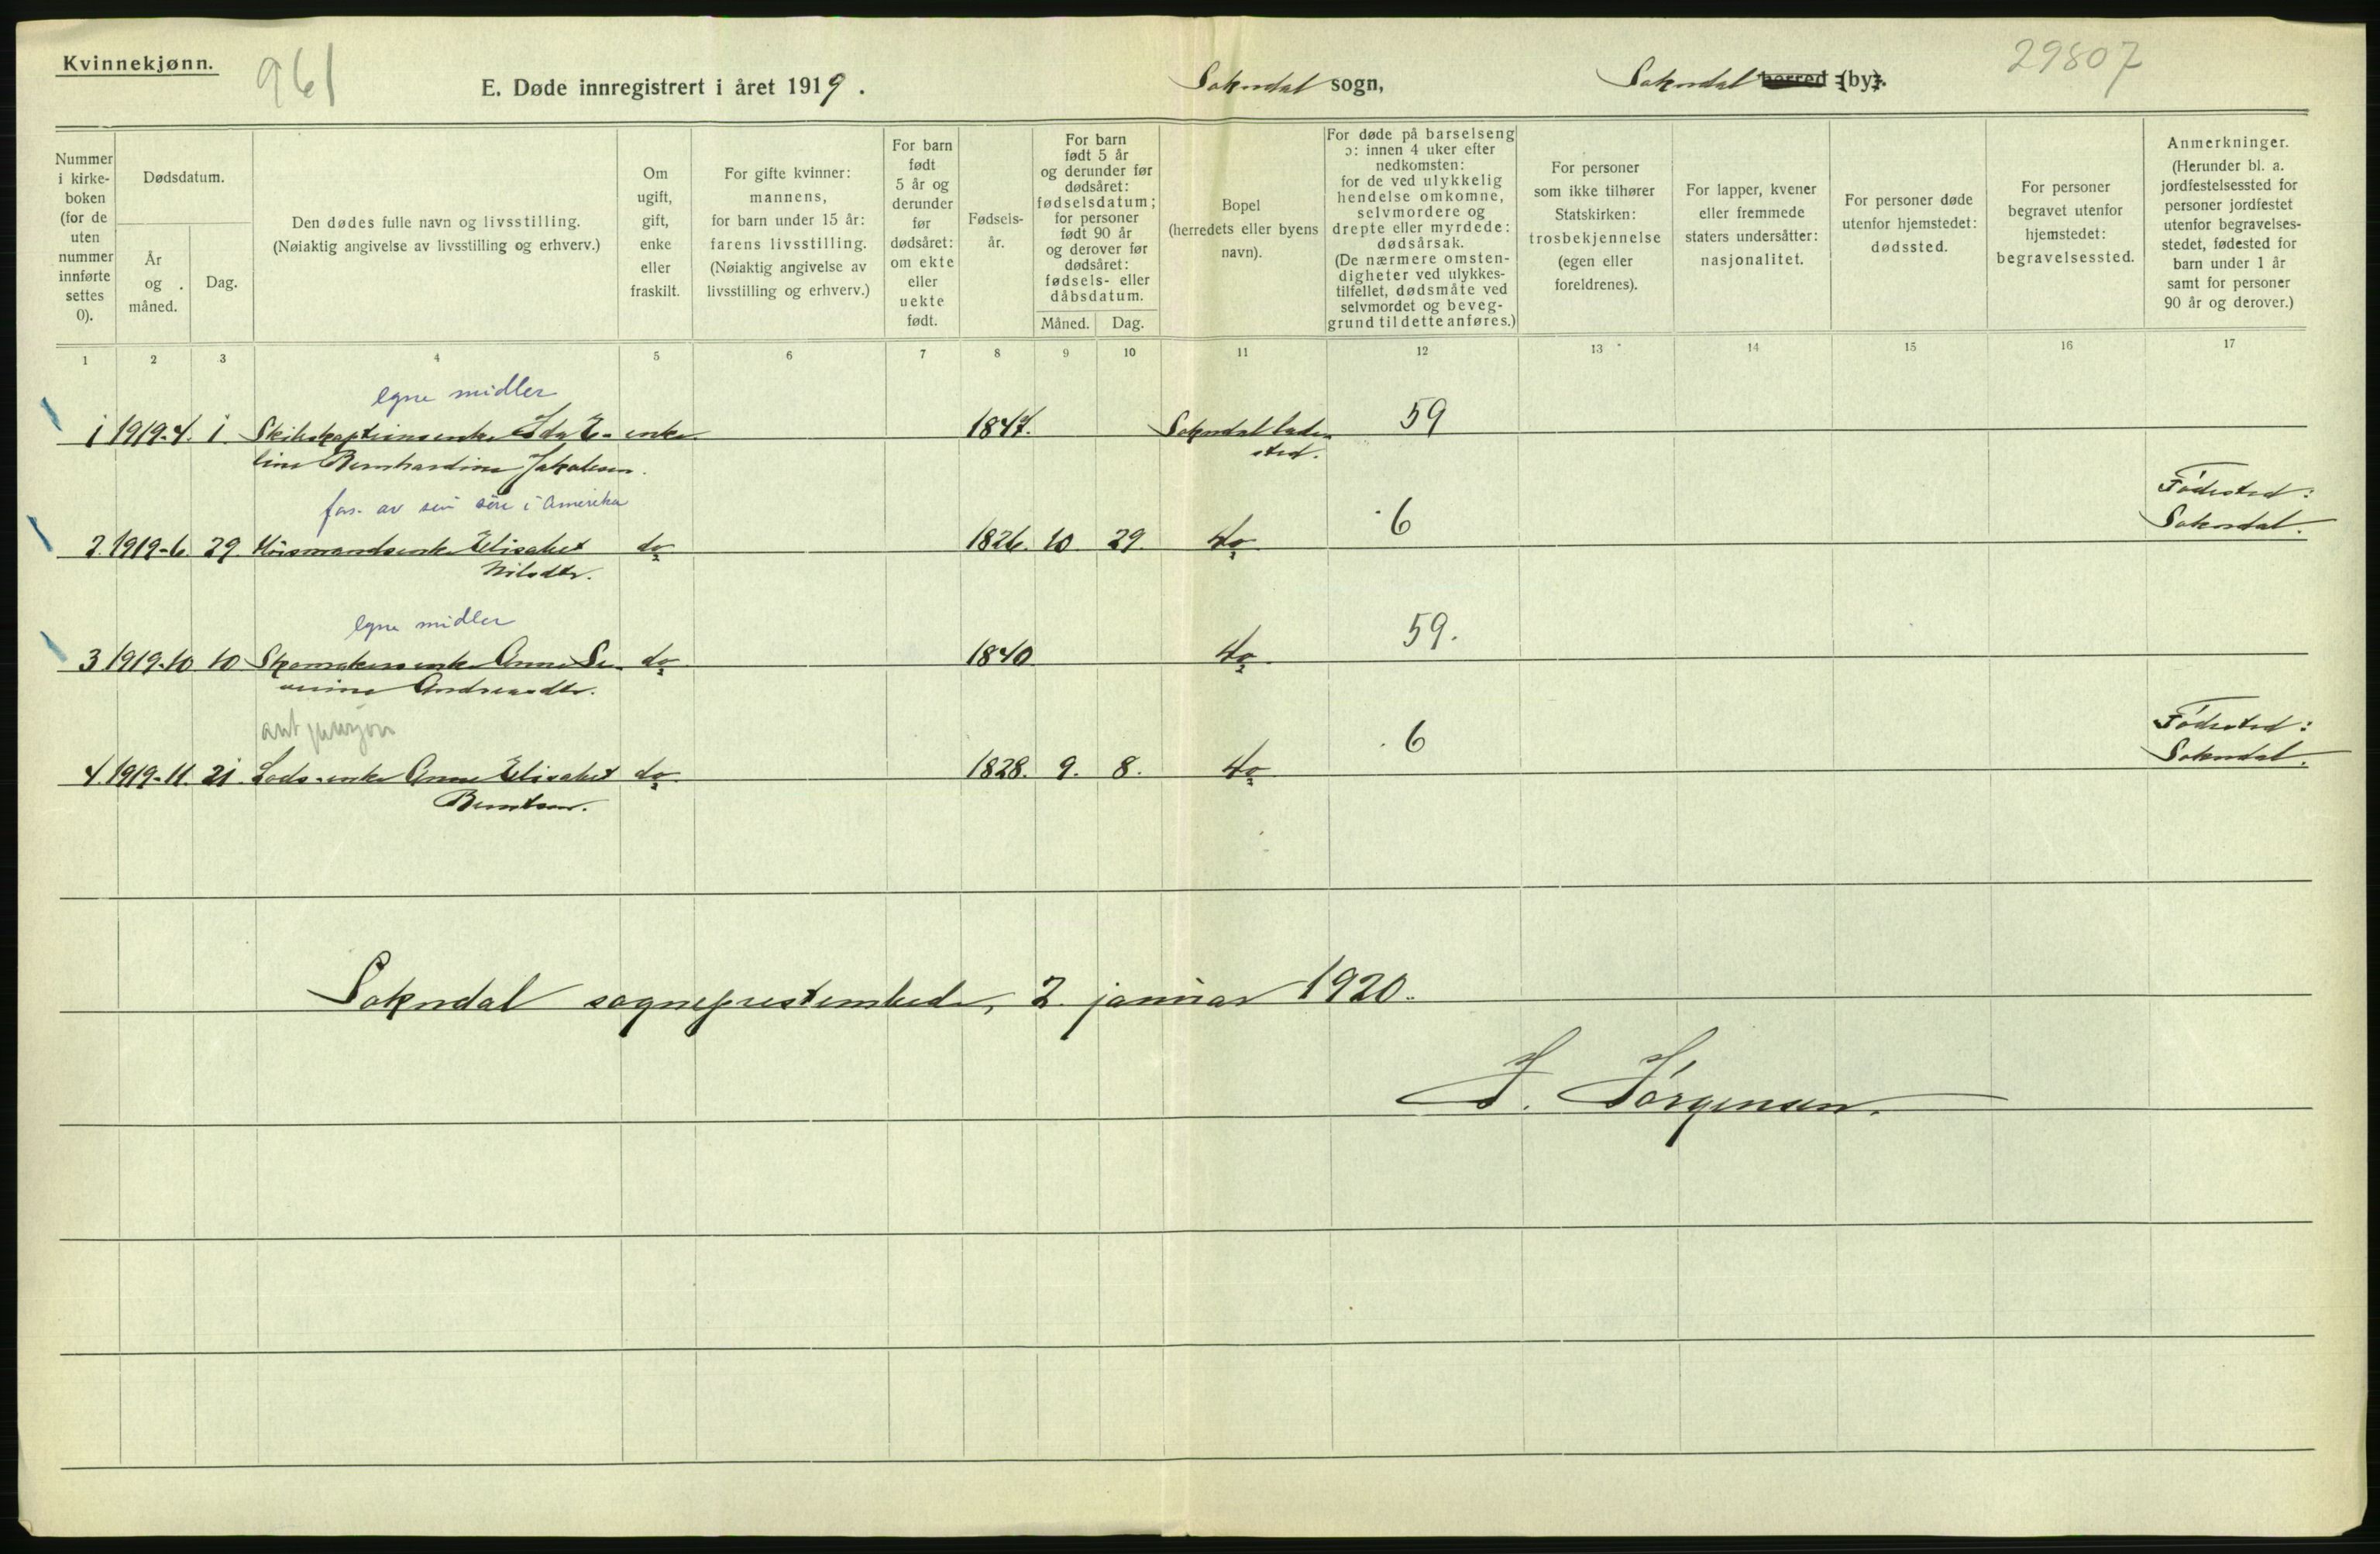 Kvinnekjønn.
961
E. Døde innregistrert i året 1919.
Sokndal sogn,
Sokndal herred (by).
29807
Nummer
i kirke-
boken
(for de
uten
nummer
innførte
settes
0).
Dødsdatum.
År
og
måned.
Dag.
Den dødes fulle navn og livsstilling.
(Nøiaktig angivelse av livsstilling og erhverv.)
Om
ugift,
gift,
enke
eller
fraskilt.
For gifte kvinner:
mannens,
for barn under 15 år:
farens livsstilling.
(Nøiaktig angivelse av
livsstilling og erhverv.)
For barn
født
5 år og
derunder
før
dødsåret:
om ekte
eller
uekte
født.
Fødsels-
år.
For barn
født 5 år
og derunder før
dødsåret:
fødselsdatum;
for personer
født 90 år
og derover før
dødsåret:
fødsels- eller
dåbsdatum.
Måned.
Dag.
Bopel
(herredets eller byens
navn).
For døde på barselseng
ɔ: innen 4 uker efter
nedkomsten:
for de ved ulykkelig
hendelse omkomne,
selvmordere og
drepte eller myrdede:
dødsårsak.
(De nærmere omsten-
digheter ved ulykkes-
tilfellet, dødsmåte ved
selvmordet og beveg-
grund til dette anføres.)
For personer
som ikke tilhører
Statskirken:
trosbekjennelse
(egen eller
foreldrenes).
For lapper, kvener
eller fremmede
staters undersåtter:
nasjonalitet.
For personer døde
utenfor hjemstedet:
dødssted.
For personer
begravet utenfor
hjemstedet:
begravelsessted.
Anmerkninger.
(Herunder bl. a.
jordfestelsessted for
personer jordfestet
utenfor begravelses-
stedet, fødested for
barn under 1 år
samt for personer
90 år og derover.)
1 2 3 4 5 6 7 8 9 10 11 12 13 14 15 16 17
egne midler
1 1919-4. 1. Skibskapteinsenke Ida E- enke. 1847. Sokndal lade- 59
line Bernhardine Jakobsen. sted.
fors. av sin sön i Amerika
Födested:
2. 1919-6. 29. Elisabet do 1826. 10. 29. do 6 Sokndal.
Nilsdtr.
egne midler
3 1919-10 10 Skomakersenke Anne Se- do 1840 do 59.
verine Andreasdtr.
ant pensjon
Födested:
4. 1919-11. 21. Lods-enke Anne Elisabet do 1828. 9. 8. do 6 Sokndal.
Berntsen.
Sokndal sogneprestembede, 2. januar 1920.
J. Jörgensen.